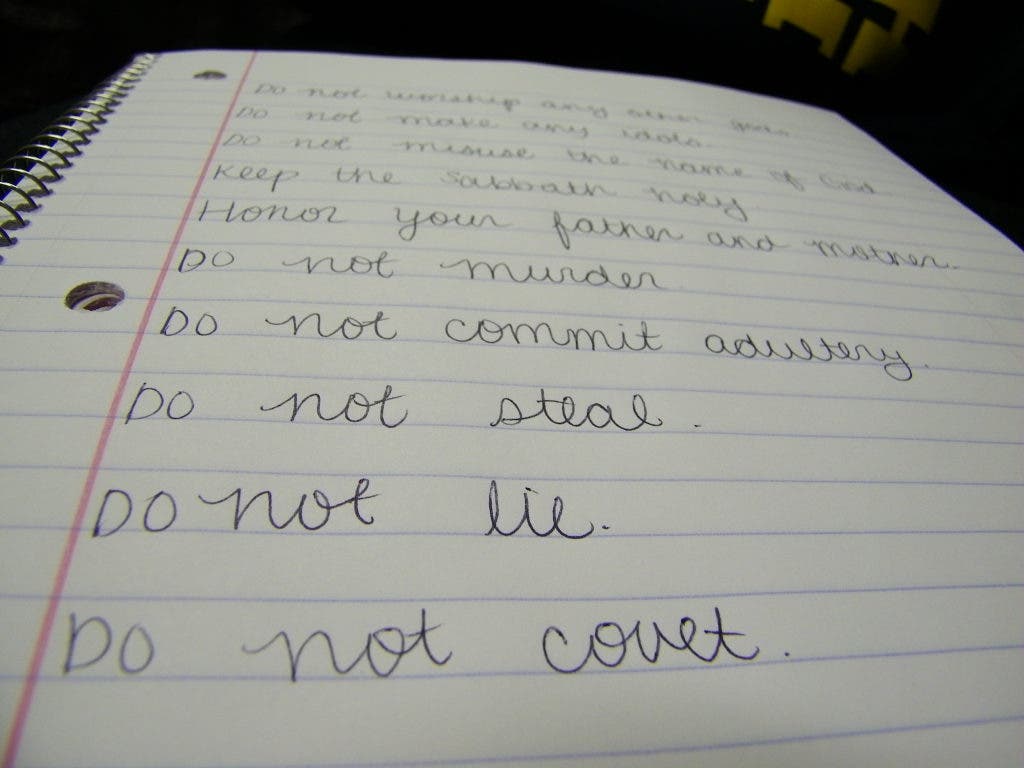 Do not worship any other gods.
Do not make any idols.
Do not misuse the name of God.
Keep the Sabbath holy
Honor your father and mother.
Do not murder
Do not commit adultery.
Do not steal.
Do not lie.
Do not covet.